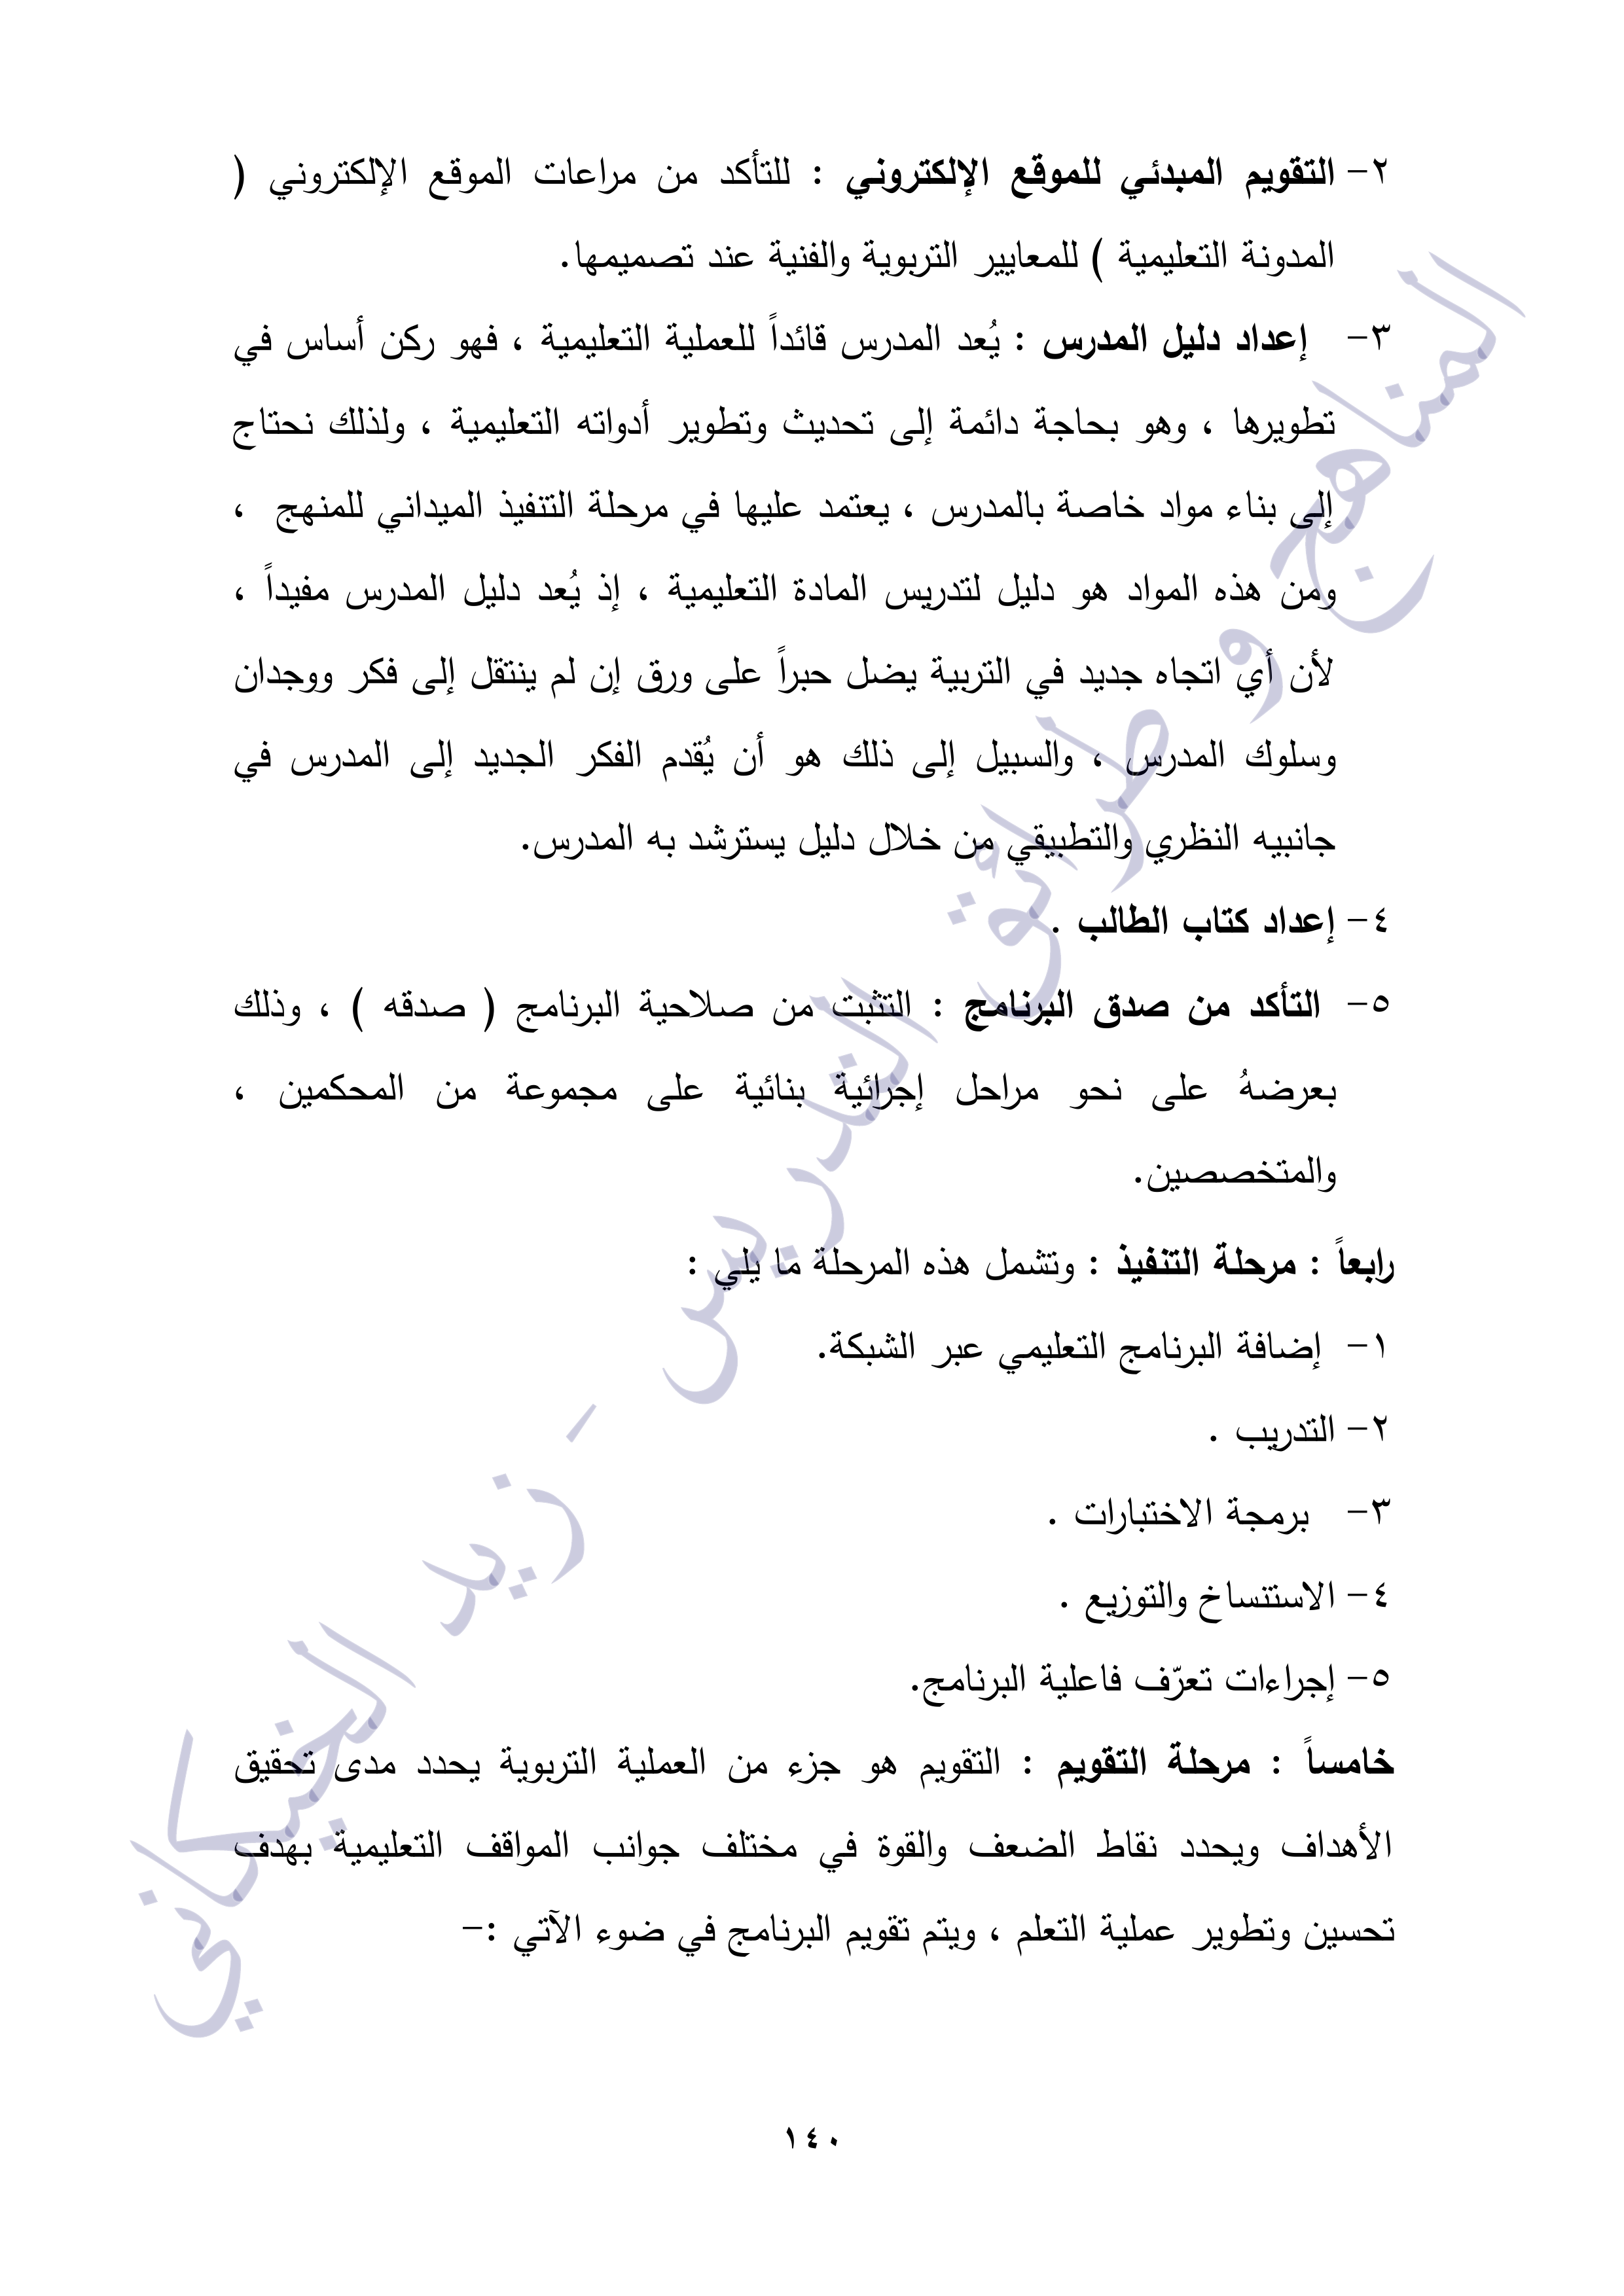 ٢- التقويم المبدئي للموقع الإلكتروني : للتأكد من مراعات الموقع الإلكتروني (
المدونة التعليمية ) للمعايير التربوية والفنية عند تصميمها.
٣- إعداد دليل المدرس : يُعد المدرس قائداً للعملية التعليمية ، فهو ركن أساس في
تطويرها ، وهو بحاجة دائمة إلى تحديث وتطوير أدواته التعليمية ، ولذلك نحتاج
إلى بناء مواد خاصة بالمدرس ، يعتمد عليها في مرحلة التنفيذ الميداني للمنهج ،
ومن هذه المواد هو دليل لتدريس المادة التعليمية ، إذ يُعد دليل المدرس مفيداً ،
لأن أي اتجاه جديد في التربية يضل حبراً على ورق إن لم ينتقل إلى فكر ووجدان
وسلوك المدرس ، والسبيل إلى ذلك هو أن يُقدم الفكر الجديد إلى المدرس في
جانبيه النظري والتطبيقي من خلال دليل يسترشد به المدرس.
٤- إعداد كتاب الطالب .
٥- التأكد من صدق البرنامج : التثبت من صلاحية البرنامج ( صدقه ) ، وذلك
بعرضهُ على نحو مراحل إجرائية بنائية على مجموعة من المحكمين ،
والمتخصصين.
رابعاً : مرحلة التنفيذ : وتشمل هذه المرحلة ما يلي :
١- إضافة البرنامج التعليمي عبر الشبكة.
٢- التدريب .
٣- برمجة الاختبارات .
٤- الاستنساخ والتوزيع .
٥- إجراءات تعرّف فاعلية البرنامج.
خامساً : مرحلة التقويم : التقويم هو جزء من العملية التربوية يحدد مدى تحقيق
الأهداف ويحدد نقاط الضعف والقوة في مختلف جوانب المواقف التعليمية بهدف
تحسين وتطوير عملية التعلم ، ويتم تقويم البرنامج في ضوء الآتي :-
١٤٠
المناهج و طرائق التدريس - زيد الخيكاني